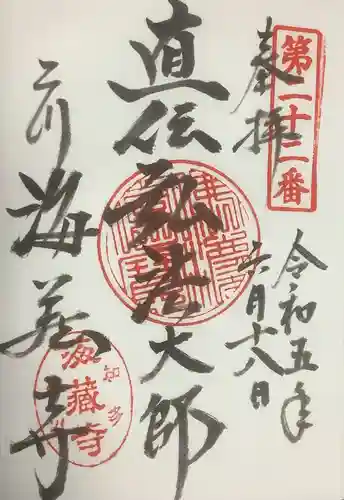 第二十二番
奉拝
令和五年
六月十八日
直伝弘法大師
海蔵寺
知多
海蔵寺